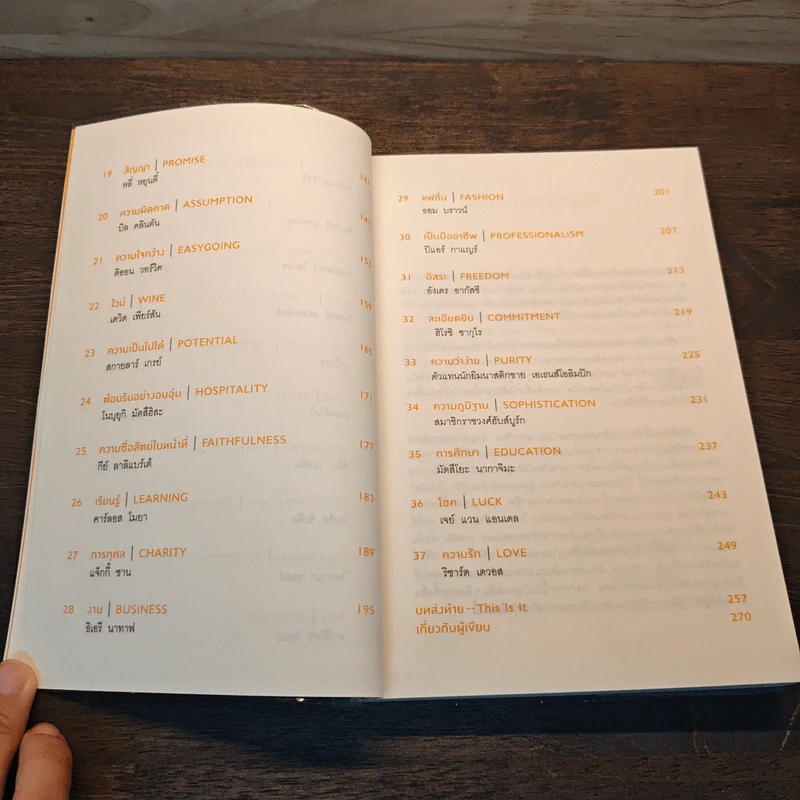 19 สัญญา | PROMISE 141
หลี่ หยุนตี้
20 ความผิดคาด | ASSUMPTION 147
บิล คลินตัน
21 ความใจกว้าง | EASYGOING 153
ดิออน วอร์วิค
22 ไวน์ | WINE 159
เดวิด เพียร์สัน
23 ความเป็นไปได้ | POTENTIAL 165
สกายลาร์ เกรย์
24 ต้อนรับอย่างอบอุ่น | HOSPITALITY 171
โนบุยูกิ มัตสึฮิสะ
25 ความซื่อสัตย์ในหน้าที่ | FAITHFULNESS 177
กีย์ ลาลิแบร์เต้
26 เรียนรู้ | LEARNING 183
คาร์ลอส โมยา
27 การกุศล | CHARITY 189
แจ็กกี้ ชาน
28 งาน | BUSINESS 195
ธิเอรี นาทาฟ
29 แฟชั่น | FASHION 201
ธอม บราวน์
30 เป็นมืออาชีพ | PROFESSIONALISM 207
ปิแอร์ กาแญร์
31 อิสระ | FREEDOM 213
อังเดร อากัสซี
32 ละเอียดยิบ | COMMITMENT 219
ฮิโรชิ ซากุไร
33 ความว่าง่าย | PURITY 225
ตัวแทนนักยิมนาสติกชาย เอเธนส์โอลิมปิก
34 ความภูมิฐาน | SOPHISTICATION 231
สมาชิกราชวงศ์ฮับส์บูร์ก
35 การศึกษา | EDUCATION 237
มัตสึโยะ นากาจิมะ
36 โชค | LUCK 243
เจย์ แวน แอนเดล
37 ความรัก | LOVE 249
ริชาร์ด เดวอส
บทส่งท้าย -- This Is It 257
เกี่ยวกับผู้เขียน 270